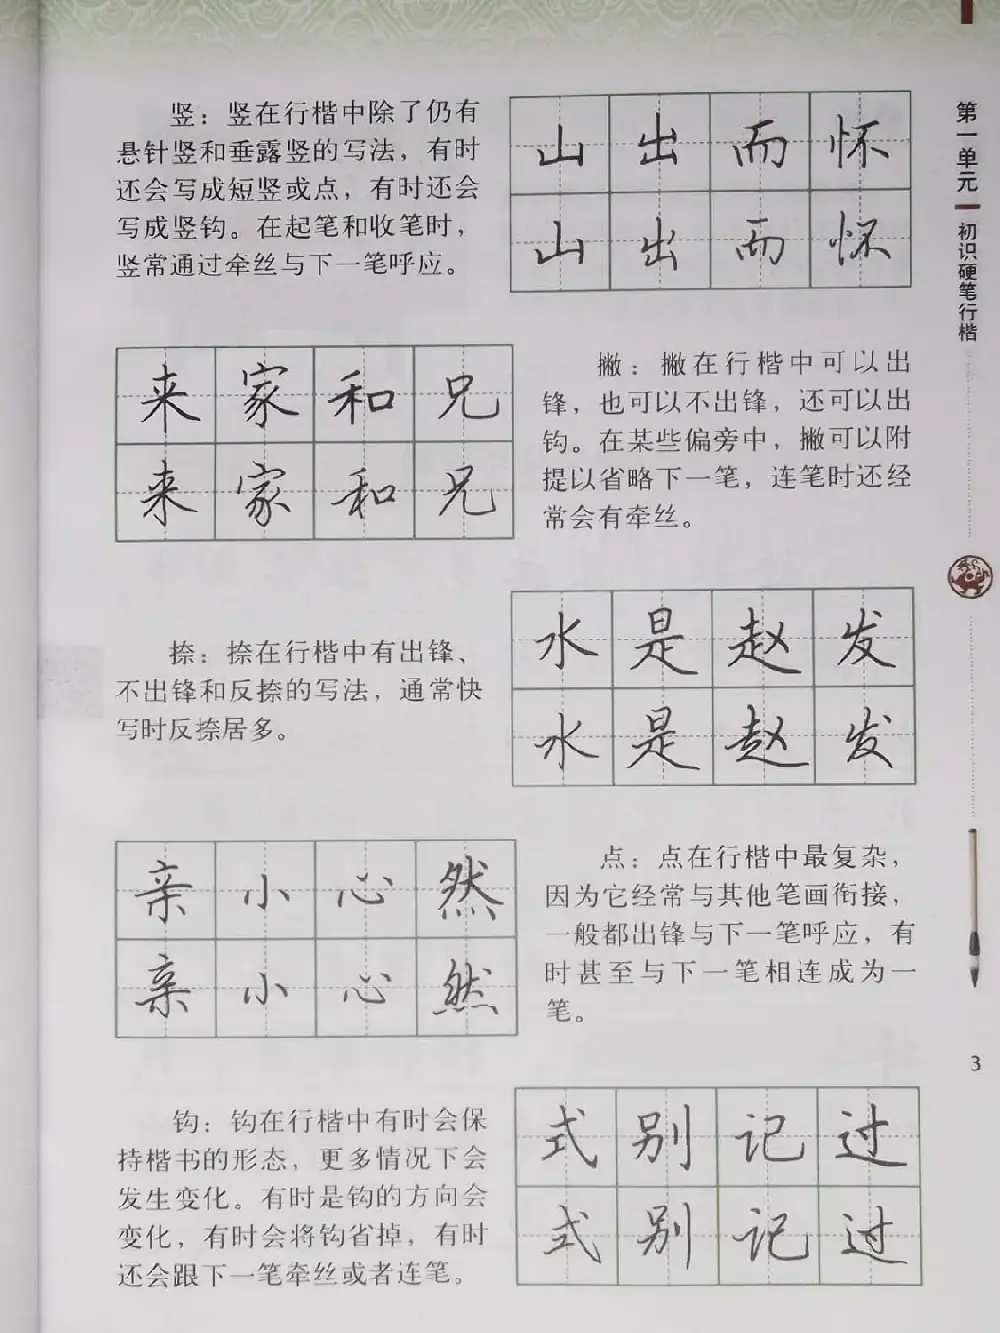 竖：竖在行楷中除了仍有
悬针竖和垂露竖的写法，有时
还会写成短竖或点，有时还会
写成竖钩。在起笔和收笔时，
竖常通过牵丝与下一笔呼应。
山出而怀
山出而怀
来家和兄
来家和兄
撇：撇在行楷中可以出
锋，也可以不出锋，还可以出
钩。在某些偏旁中，撇可以附
提以省略下一笔，连笔时还经
常会有牵丝。
捺：捺在行楷中有出锋、
不出锋和反捺的写法，通常快
写时反捺居多。
水是赵发
水是赵发
亲小心然
亲小心然
点：点在行楷中最复杂，
因为它经常与其他笔画衔接，
一般都出锋与下一笔呼应，有
时甚至与下一笔相连成为一
笔。
钩：钩在行楷中有时会保
持楷书的形态，更多情况下会
发生变化。有时是钩的方向会
变化，有时会将钩省掉，有时
还会跟下一笔牵丝或者连笔。
式别记过
式别记过
第一单元
初识硬笔行楷
3